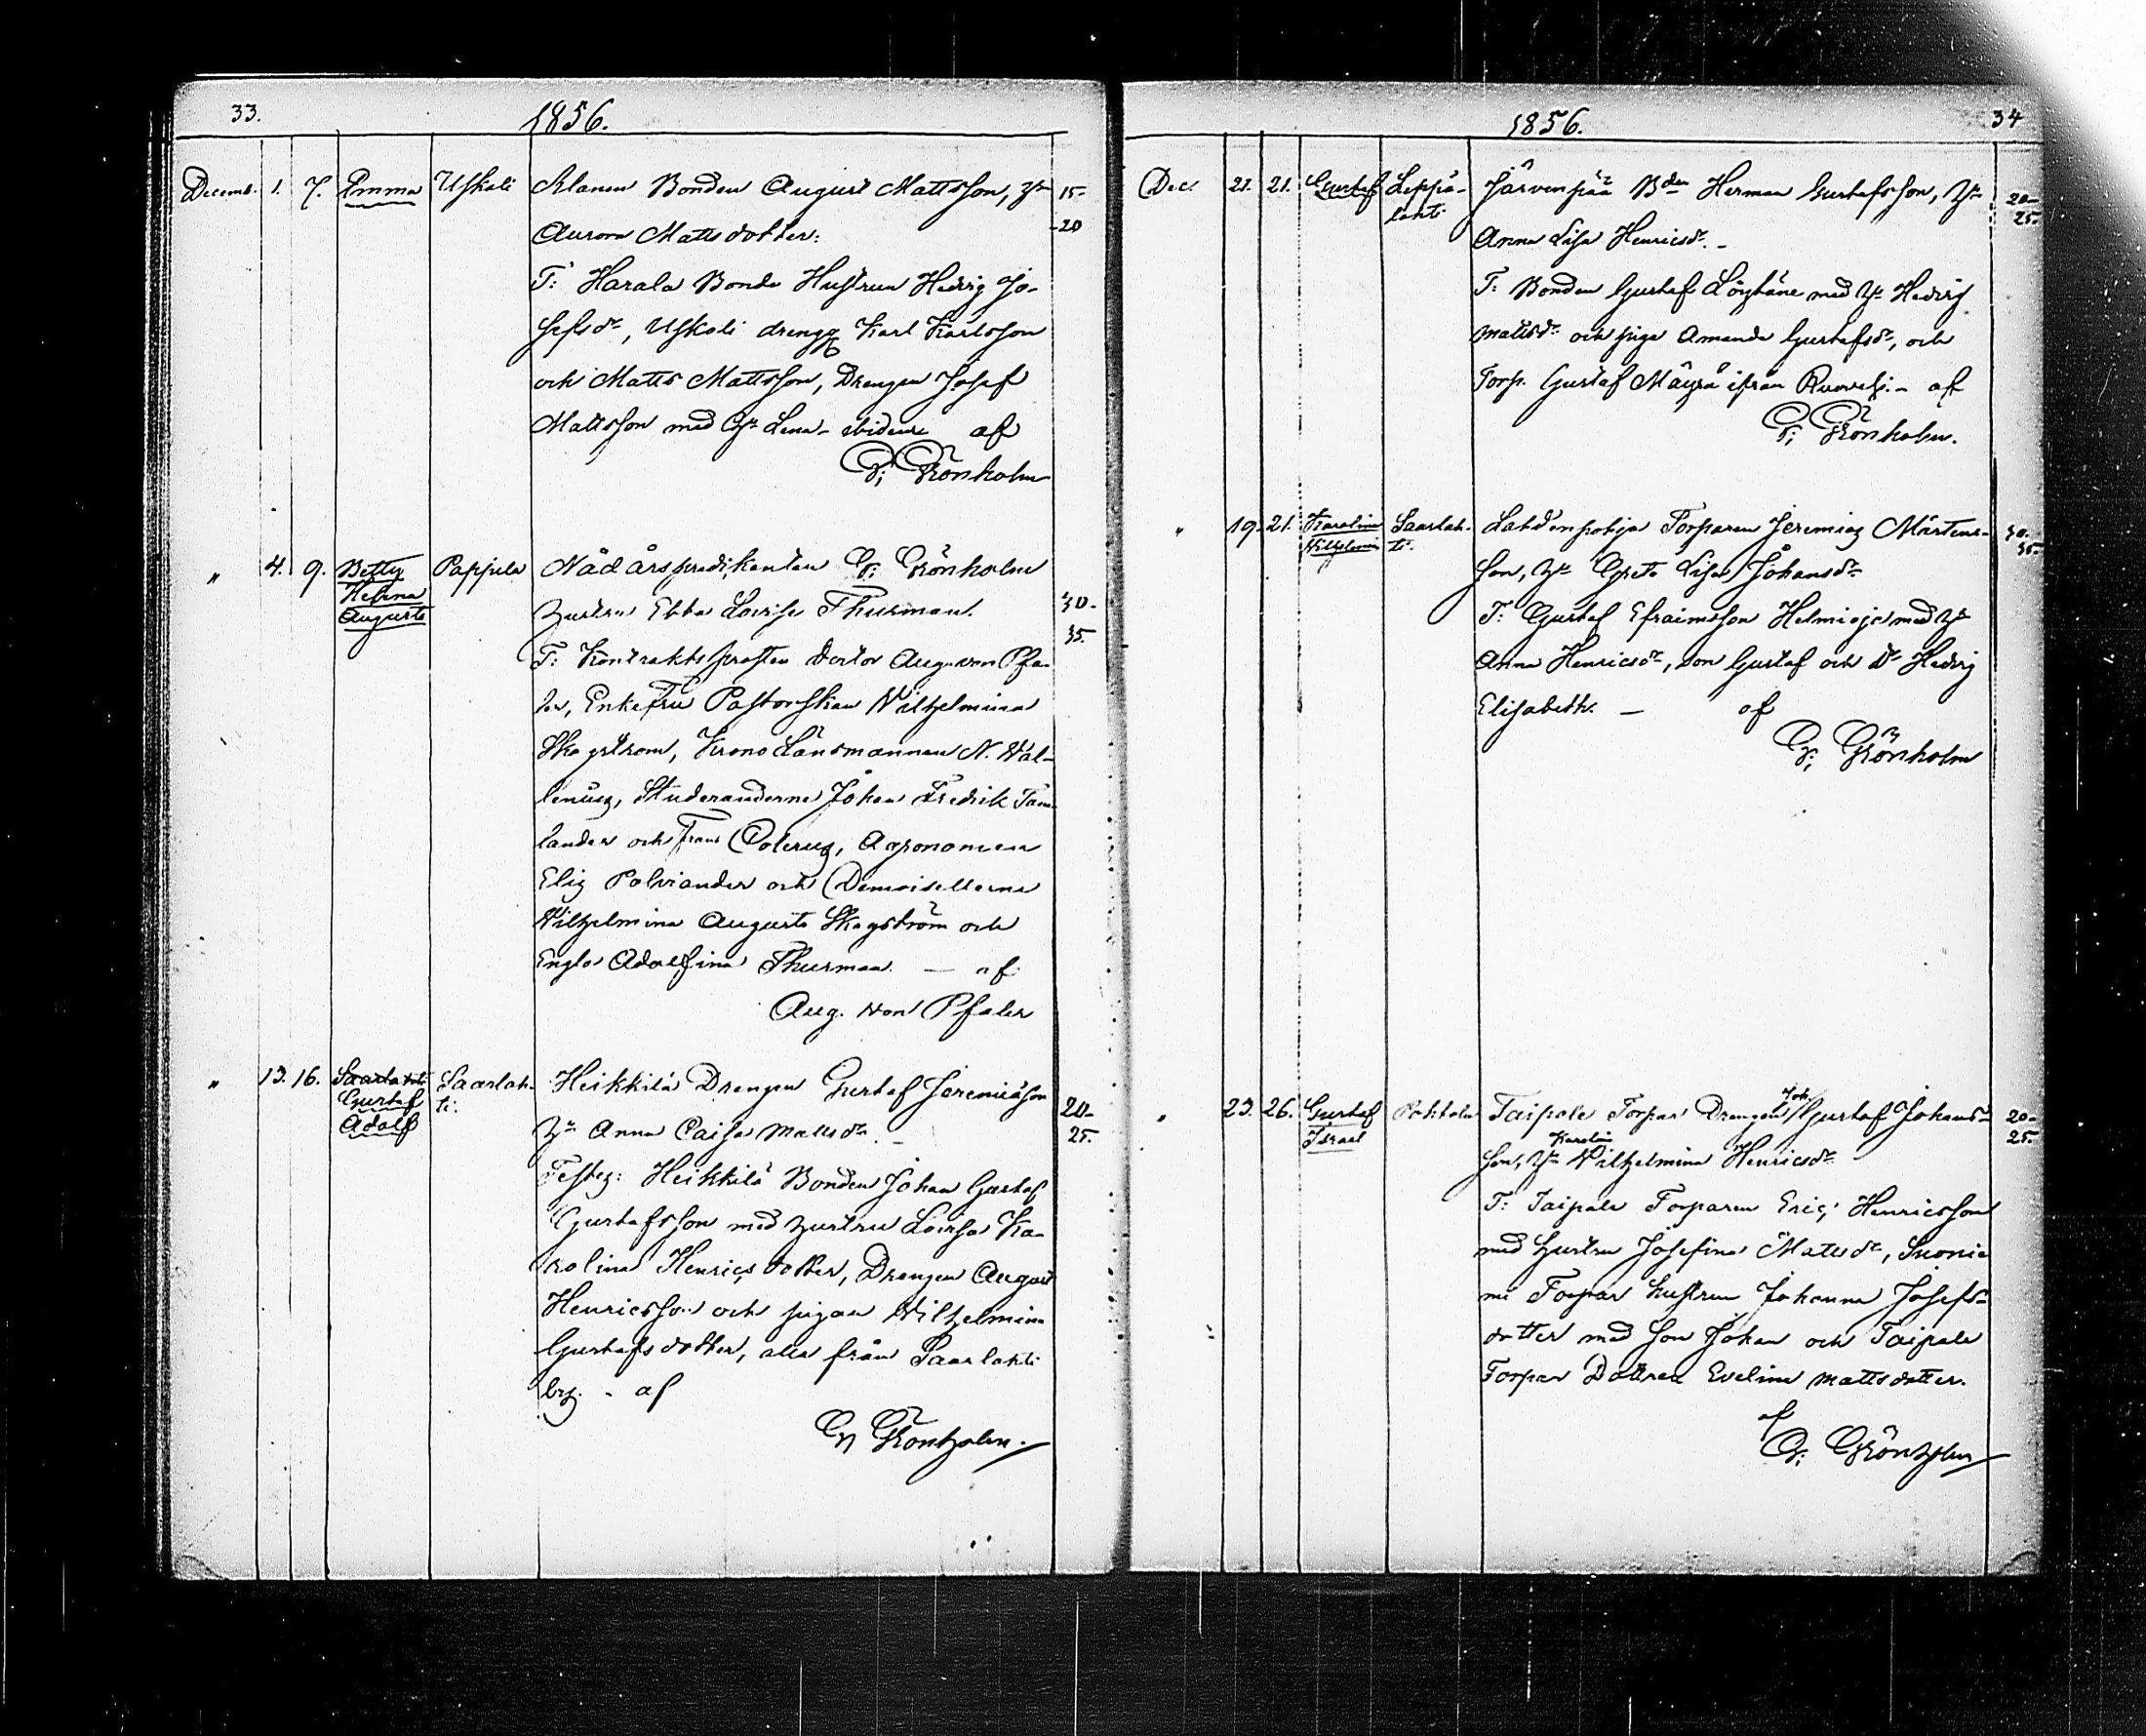 33.
1856.
Decemb. 1. 7. Emma Uskali Alanen Bonden August Mattsson, hu 15-
Aurora Matts dotter: 20
T: Harala Bonde Hustrun Hedvig Jo-
sefsdr, Uskali drengg Karl Karlsson
och Matts Mattsson, Drengen Josef
Mattsson med hu Lena - ibidem af
G: Grönholm
" 4. 9. Betty Pappila Nådårspredikanten G: Grönholm
Helena hustru Ebba Lovisa Thurman. 30-
Augusta 35.
T: Kontraktsprosten doctor Aug. von Pfa-
ler, Enkefru Pastorskan Wilhelmina
Skogstrom, Krono Länsmannen N. Wal-
lenius, Studeranderne Johan Fredrik Tam
lander och Frans Polerus, Agronomen
Elis Polviander och Demoisellerna
Wilhelmina Augusta Skogström och
Engla Adolfina Thurman. — af
Aug. von Pfaler
" 13. 16. Saarlahti Saarlah- Heikkilä Drengen Gustaf Jeremiasson
Gustaf ti. 20-
Adolf hu Anna Caisa Mattsdr. - 25.
Testes: Heikkilä Bonden Johan Gustaf
Gustafsson med hustru Lovisa Ka-
rolina Henricsdotter, Drengen August
Henricsson och pigan Wilhelmina
Gustafsdotter, alla från Saarlahti
by. - af
G Grönholm.
1856.
34
Dec. 21. 21. Gustaf Leppä- Järvenpää Bden Herman Gustafsson, hu 20-
lahti 25.
Anna Lisa Henricsdr. -
T: Bonden Gustaf Löytäne med hu Hedvig
Mattsdr och piga Amanda Gustafsdr, och
Torp. Gustaf Mäyrä ifrån Ruovesi. - af
G: Grönholm.
" 19. 21. Karolina Saarlah- Lahdenpohja Torparen Jeremias Mårtens- 30.
Wilhelmina ti. 35.
son, hu Greta Lisa Johansdr
T: Gustaf Efraimsson Helmioja med hu
Anna Henricsdr, son Gustaf och dr Hedvig
Elisabeth. — af
G: Grönholm
" 23. 26. Gustaf Pohtola Taipale Torpar Drengen Joh. Gustaf Johans- 20-
Israel 25.
son, hu Karolin Wilhelmina Henricsdr
T: Taipale Torparen Eric Henricsson
med hustru Josefina Mattsdr, Suonie
mi Torpar hustrun Johanna Josefs-
dotter med son Johan och Taipale
Torpar Dottren Evelina Mattsdotter.
af
G: Grönholm